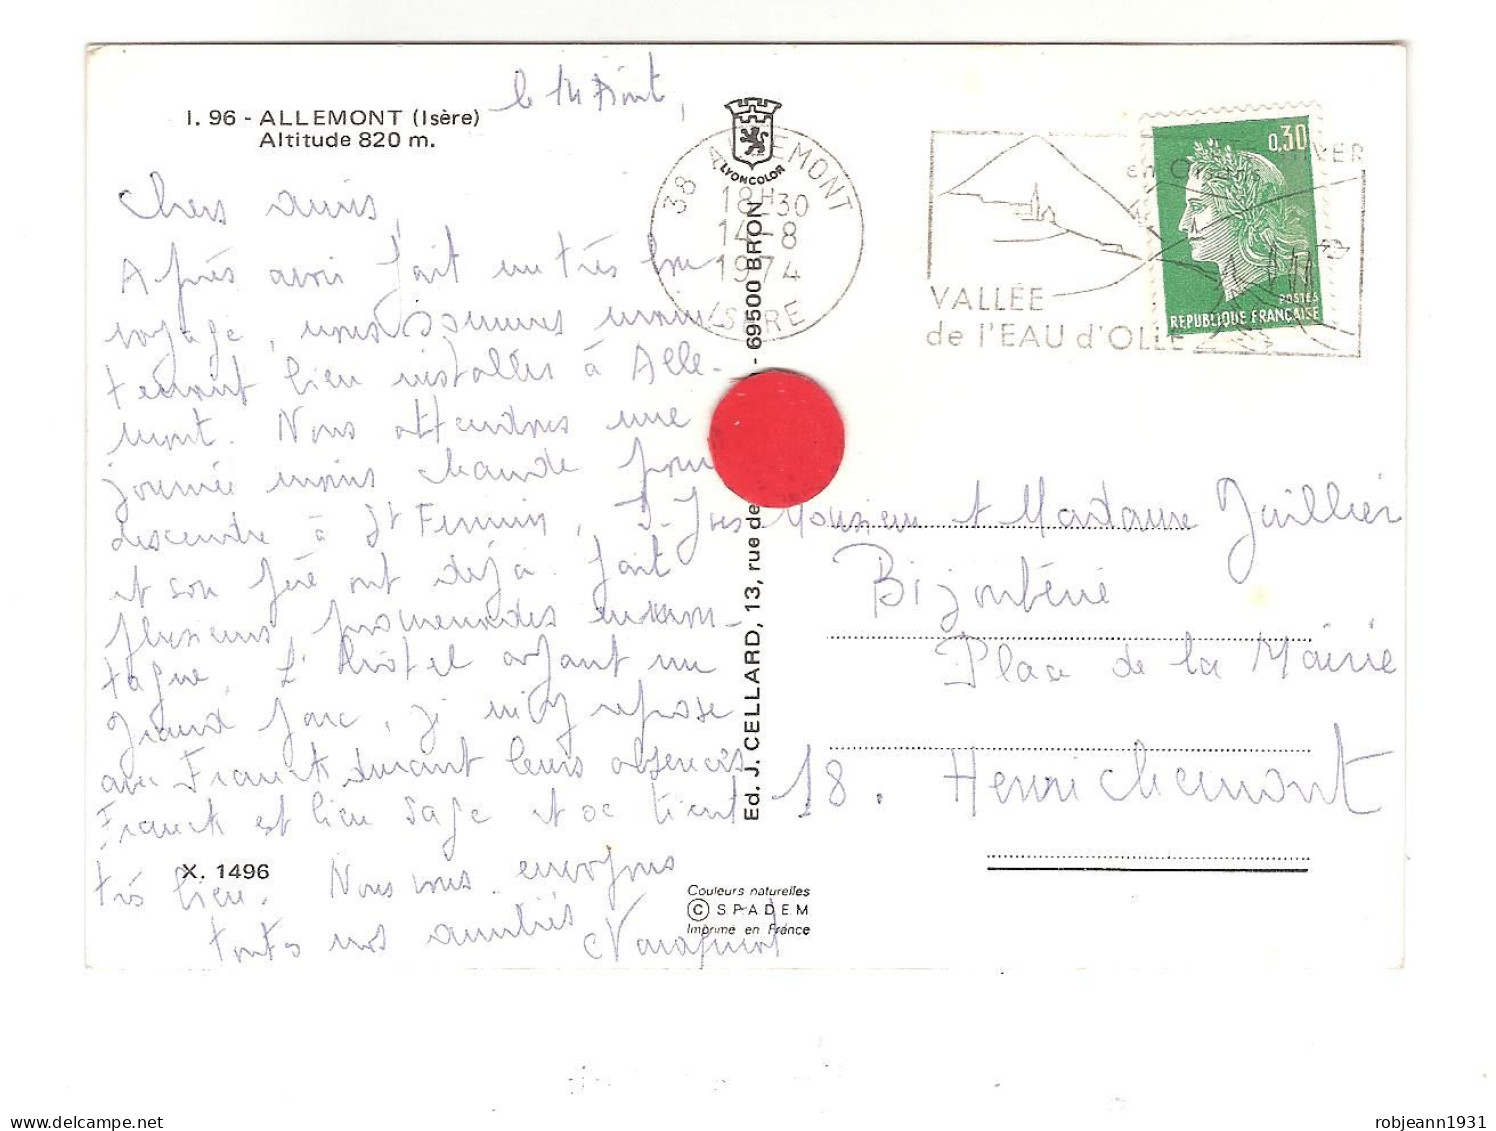 le 14 Août,
I. 96 - ALLEMONT (Isère)
Altitude 820 m.
Chers amis,
Après avoir fait un très bon
voyage, nous sommes main
tenant bien installés à Alle-
mont. Nous attendons une
journée moins chaude pour
descendre à St Firmin, J-Yves
et son père ont déjà fait
plusieurs promenades en mon-
tagne. L'Hôtel ayant un
grand parc, j'y repose
avec Franck durant leurs absences
Franck est bien sage et se tient
très bien. Nous vous envoyons
toutes nos amitiés
X. 1496
LYONCOLOR
38 ALLEMONT
18H30
14-8
1974
ISÈRE
Ed. J. CELLARD, 13, rue de - 69500 BRON
Couleurs naturelles
© SPADEM
Imprimé en France
HIVER
en Oisans
VALLÉE
de l'EAU d'OLLE
0,30
POSTES
REPUBLIQUE FRANÇAISE
Monsieur et Madame Jaillier
Bijouterie
Place de la Mairie
18. Henrichemont
delcampe.net
robjeann1931